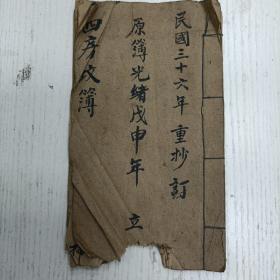 民國三十六年 重抄 訂
原簿光緒戊申年 立
四房戊簿